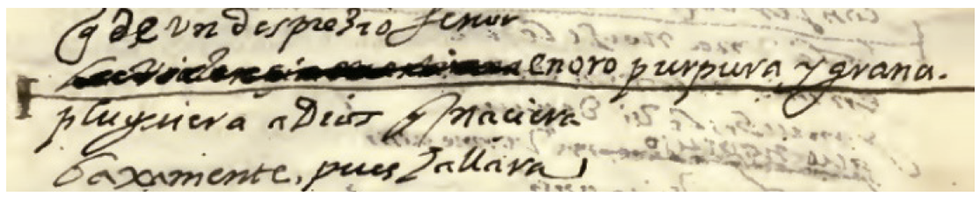 q de un desprezio señor
en oro purpura y grana.
pluguiera a Dios q naciera
baxamente, pues hallara